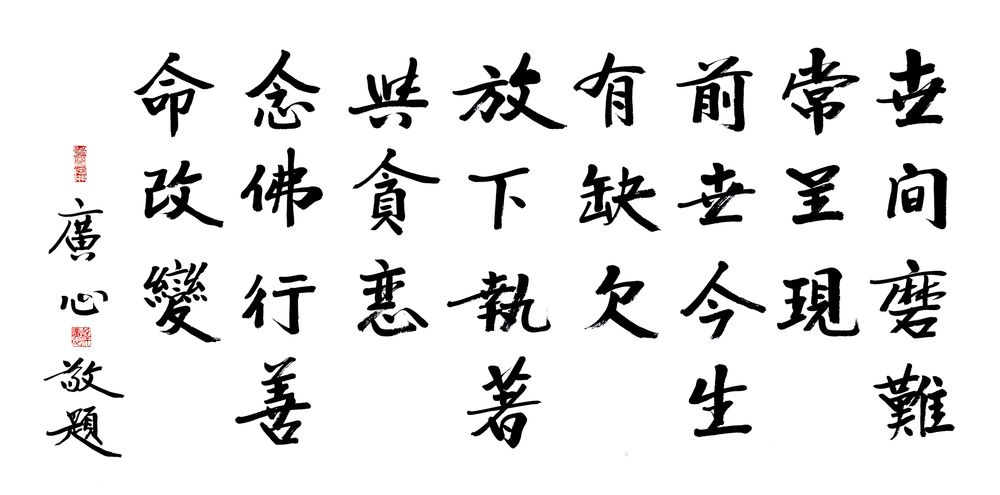 世間磨難
常呈現
前世今生
有缺欠
放下執著
與貪恋
念佛行善
命改變
廣心敬題